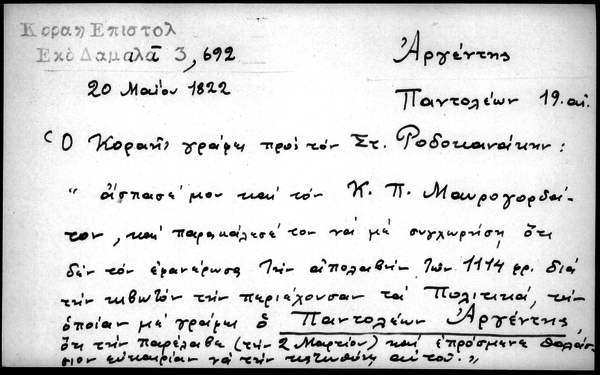 Κοραη Επιστολ
Εκδ Δαμαλᾶ 3, 692
Ἀργέντης
20 Μαΐου 1822
Παντολέων 19. αἰ.
Ὁ Κοραῆς γράφει πρὸς τὸν Στ. Ῥοδοκανάκην:
"ἀσπασέ μου καὶ τὸν Κ. Π. Μαυρογορδά-
τον, καὶ παρακάλεσέ τον νὰ μὲ συγχωρήσῃ ὅτι
δὲν τὸν ἐφανέρωσα τὴν ἀπολαβὴν τῶν 1114 φρ. διὰ
τὴν κιβωτὸν τὴν περιέχουσαν τὰ Πολιτικά, τὴν
ὁποίαν μὲ γράφει ὁ Παντολέων Ἀργέντης,
ὅτι τὴν παρέλαβε (τὴν 2 Μαρτίου) καὶ ἐπρόσμενε θαλάσ-
σιον εὐκαιρίαν νὰ τὴν κατευθύνῃ αὐτοῦ."